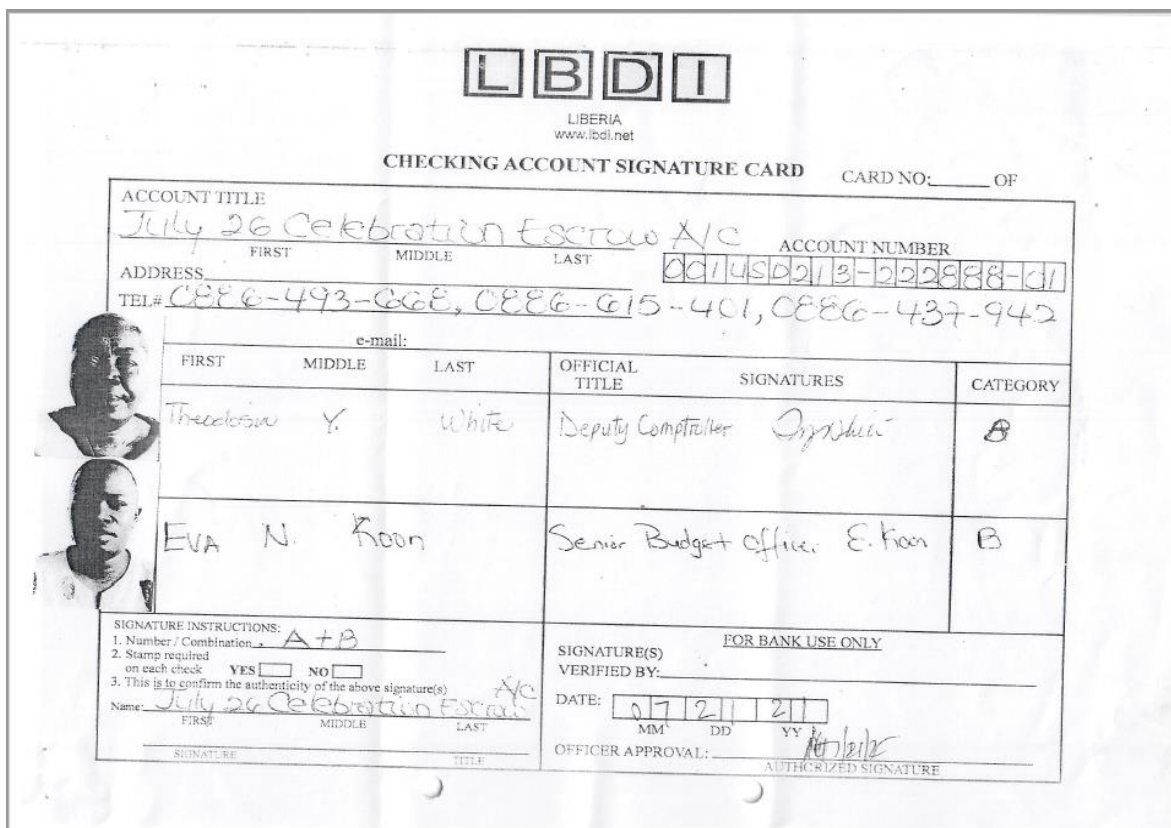 LBDI
LIBERIA
www.lbdi.net
CHECKING ACCOUNT SIGNATURE CARD CARD NO:______ OF
ACCOUNT TITLE
July 26 Celebration Escrow A/C
FIRST MIDDLE LAST
ACCOUNT NUMBER
001USD213-222888-01
ADDRESS
TEL# 0886-493-668, 0886-615-401, 0886-437-942
e-mail:
FIRST MIDDLE LAST OFFICIAL TITLE SIGNATURES CATEGORY
Y. White Deputy Comptroller B
EVA N. Koon Senior Budget Officer E. Koon B
SIGNATURE INSTRUCTIONS:
1. Number / Combination A+B
2. Stamp required
on each check YES NO
3. This is to confirm the authenticity of the above signature(s)
Name: July 26 Celebration Escrow A/C
FIRST MIDDLE LAST
SIGNATURE TITLE
FOR BANK USE ONLY
SIGNATURE(S)
VERIFIED BY:
DATE: 07 21 21
MM DD YY
OFFICER APPROVAL:
AUTHORIZED SIGNATURE